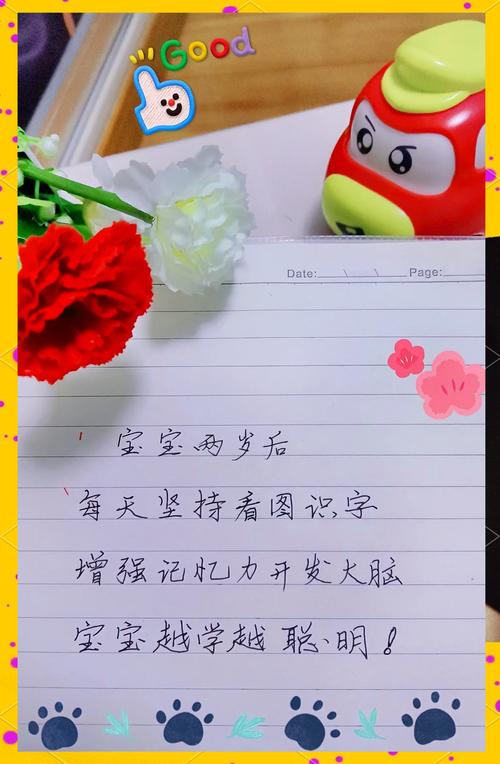 Good
Date: \ \ Page:
宝宝两岁后
每天坚持看图识字
增强记忆力开发大脑
宝宝越学越聪明！